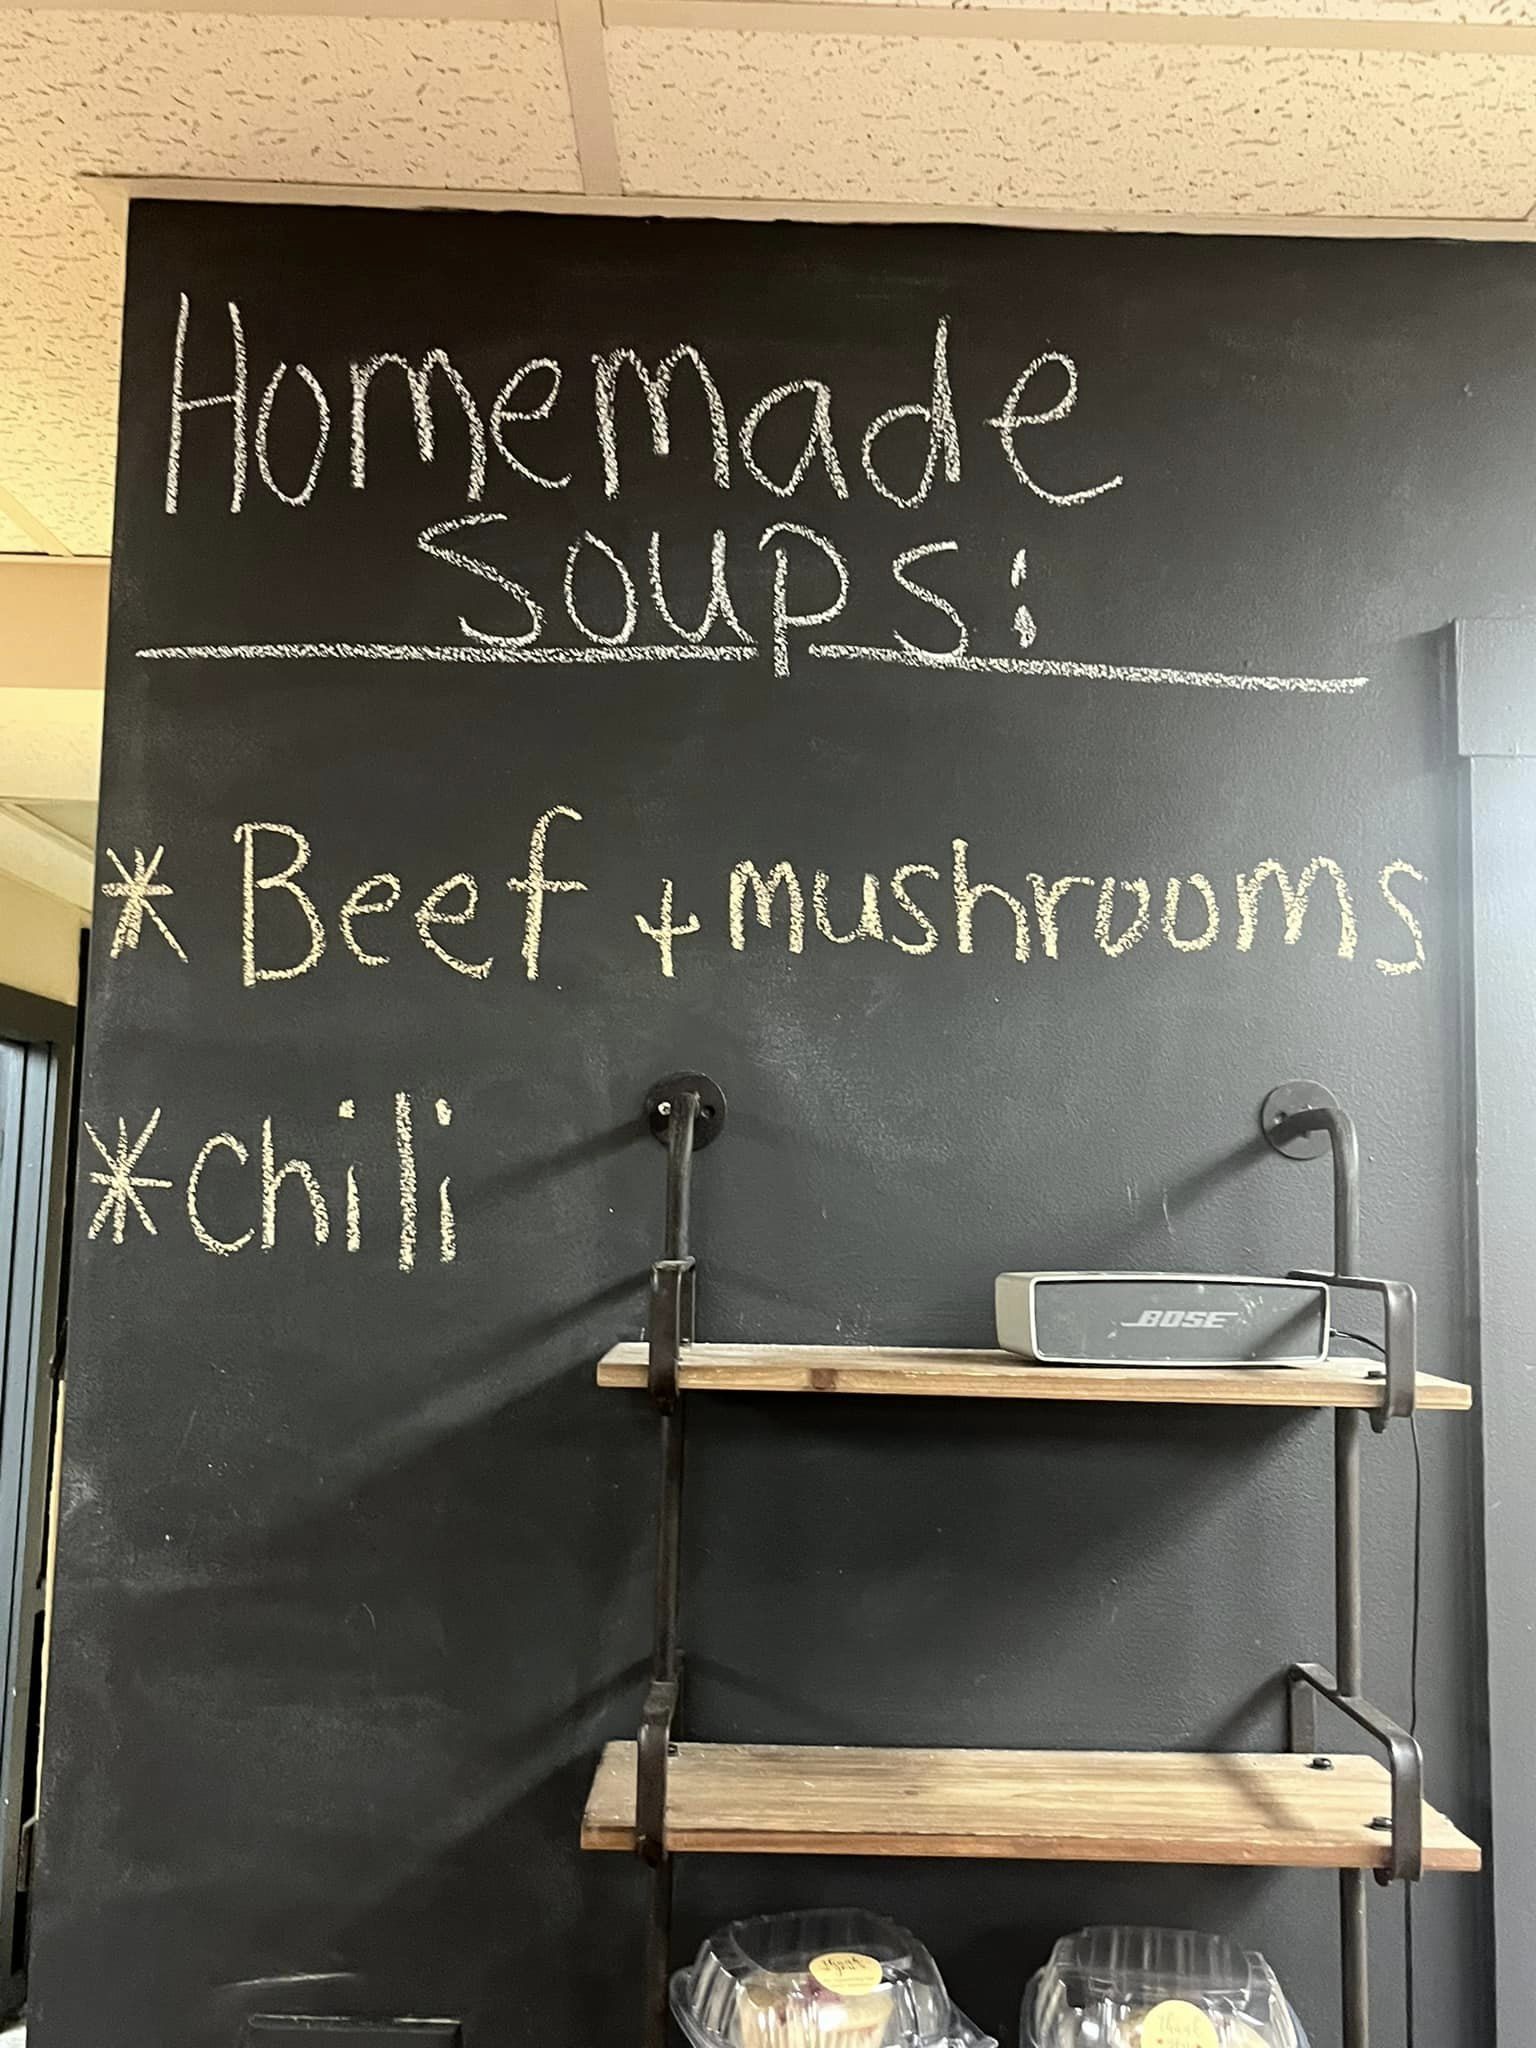 Homemade
Soups:
* Beef + mushrooms
* Chili
BOSE
thank